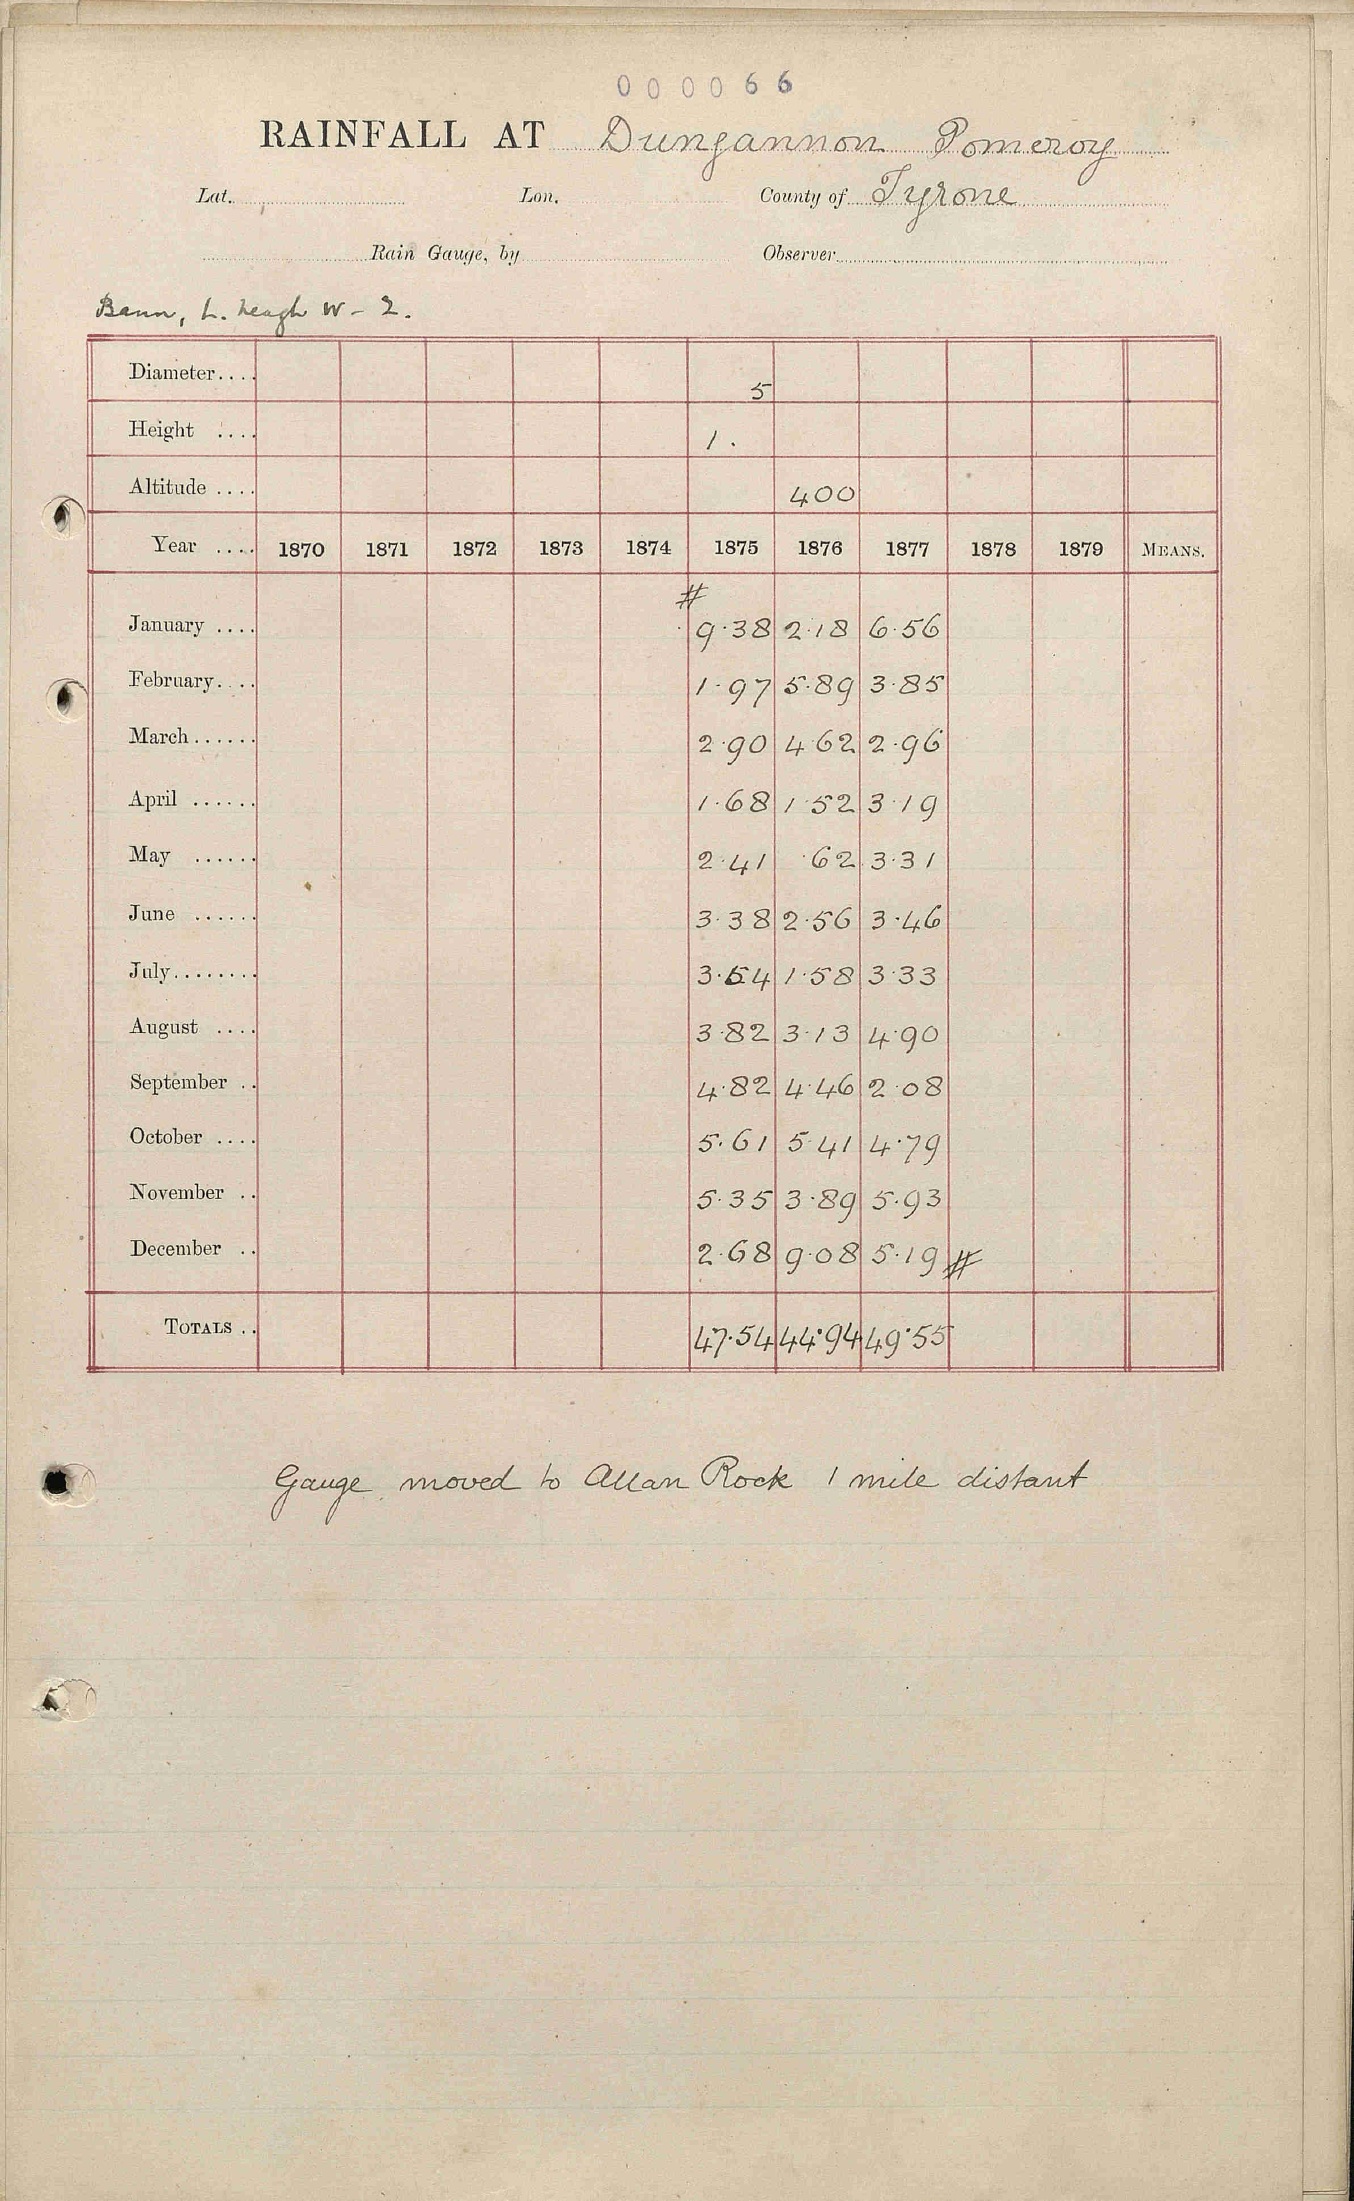 000066
RAINFALL AT Dungannon Pomeroy
Lat. Lon. County of Tyrone
Rain Gauge, by Observer
Bann, L. Neagh W - 2.
Diameter.... 5
Height .... 1.
Altitude .... 400
Year .... 1870 1871 1872 1873 1874 1875 1876 1877 1878 1879 MEANS.
#
January .... 9.38 2.18 6.56
February.... 1.97 5.89 3.85
March...... 2.90 4.62 2.96
April ...... 1.68 1.52 3.19
May ...... 2.41 .62 3.31
June ...... 3.38 2.56 3.46
July........ 3.54 1.58 3.33
August .... 3.82 3.13 4.90
September .. 4.82 4.46 2.08
October .... 5.61 5.41 4.79
November .. 5.35 3.89 5.93
December .. 2.68 9.08 5.19 #
TOTALS .. 47.54 44.94 49.55
Gauge moved to Allan Rock 1 mile distant